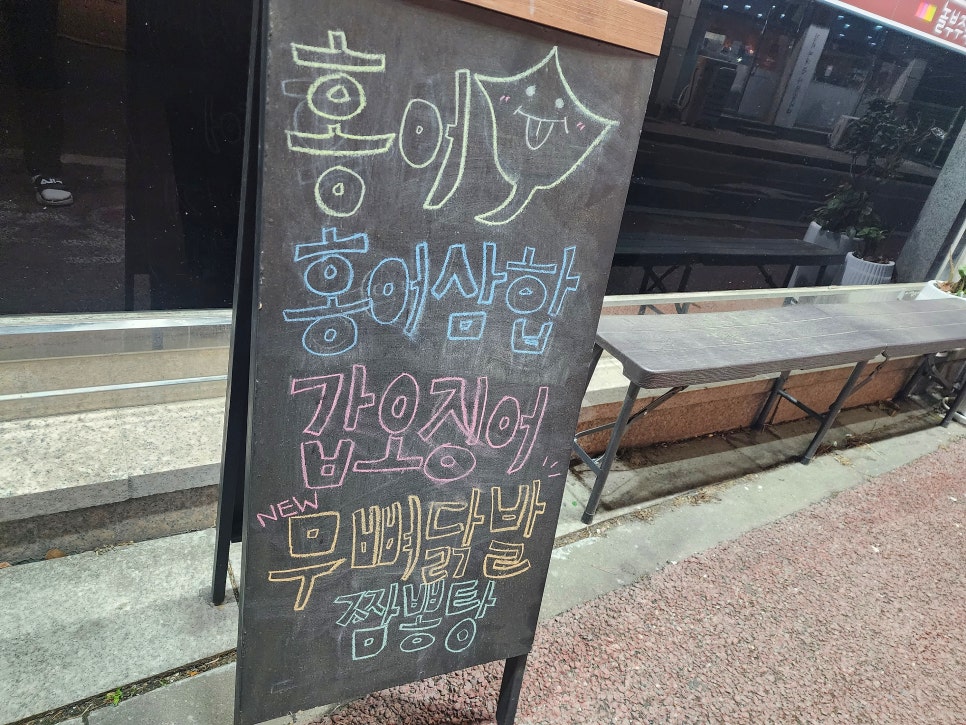 홍어
홍어삼합
갑오징어
NEW
무뼈닭발
짬뽕탕